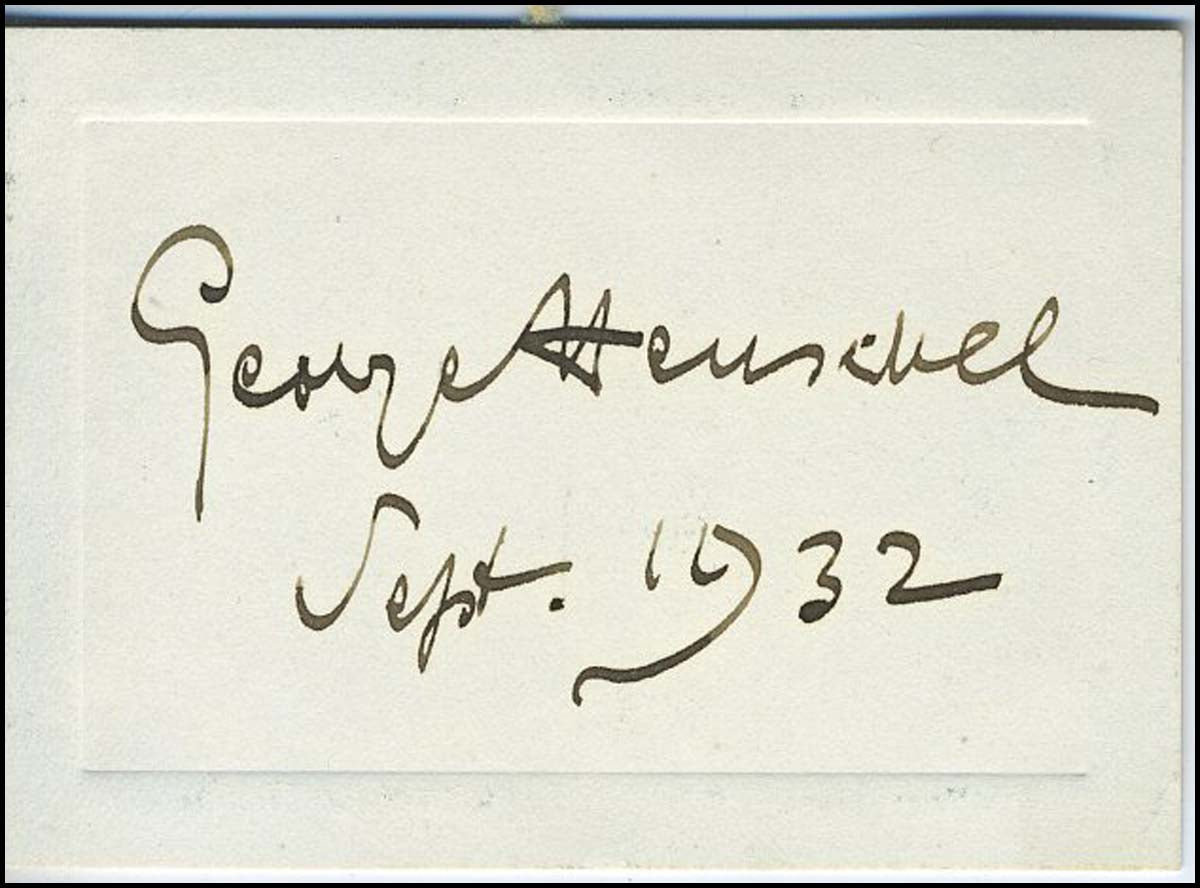 George Henschel
Sept. 1932